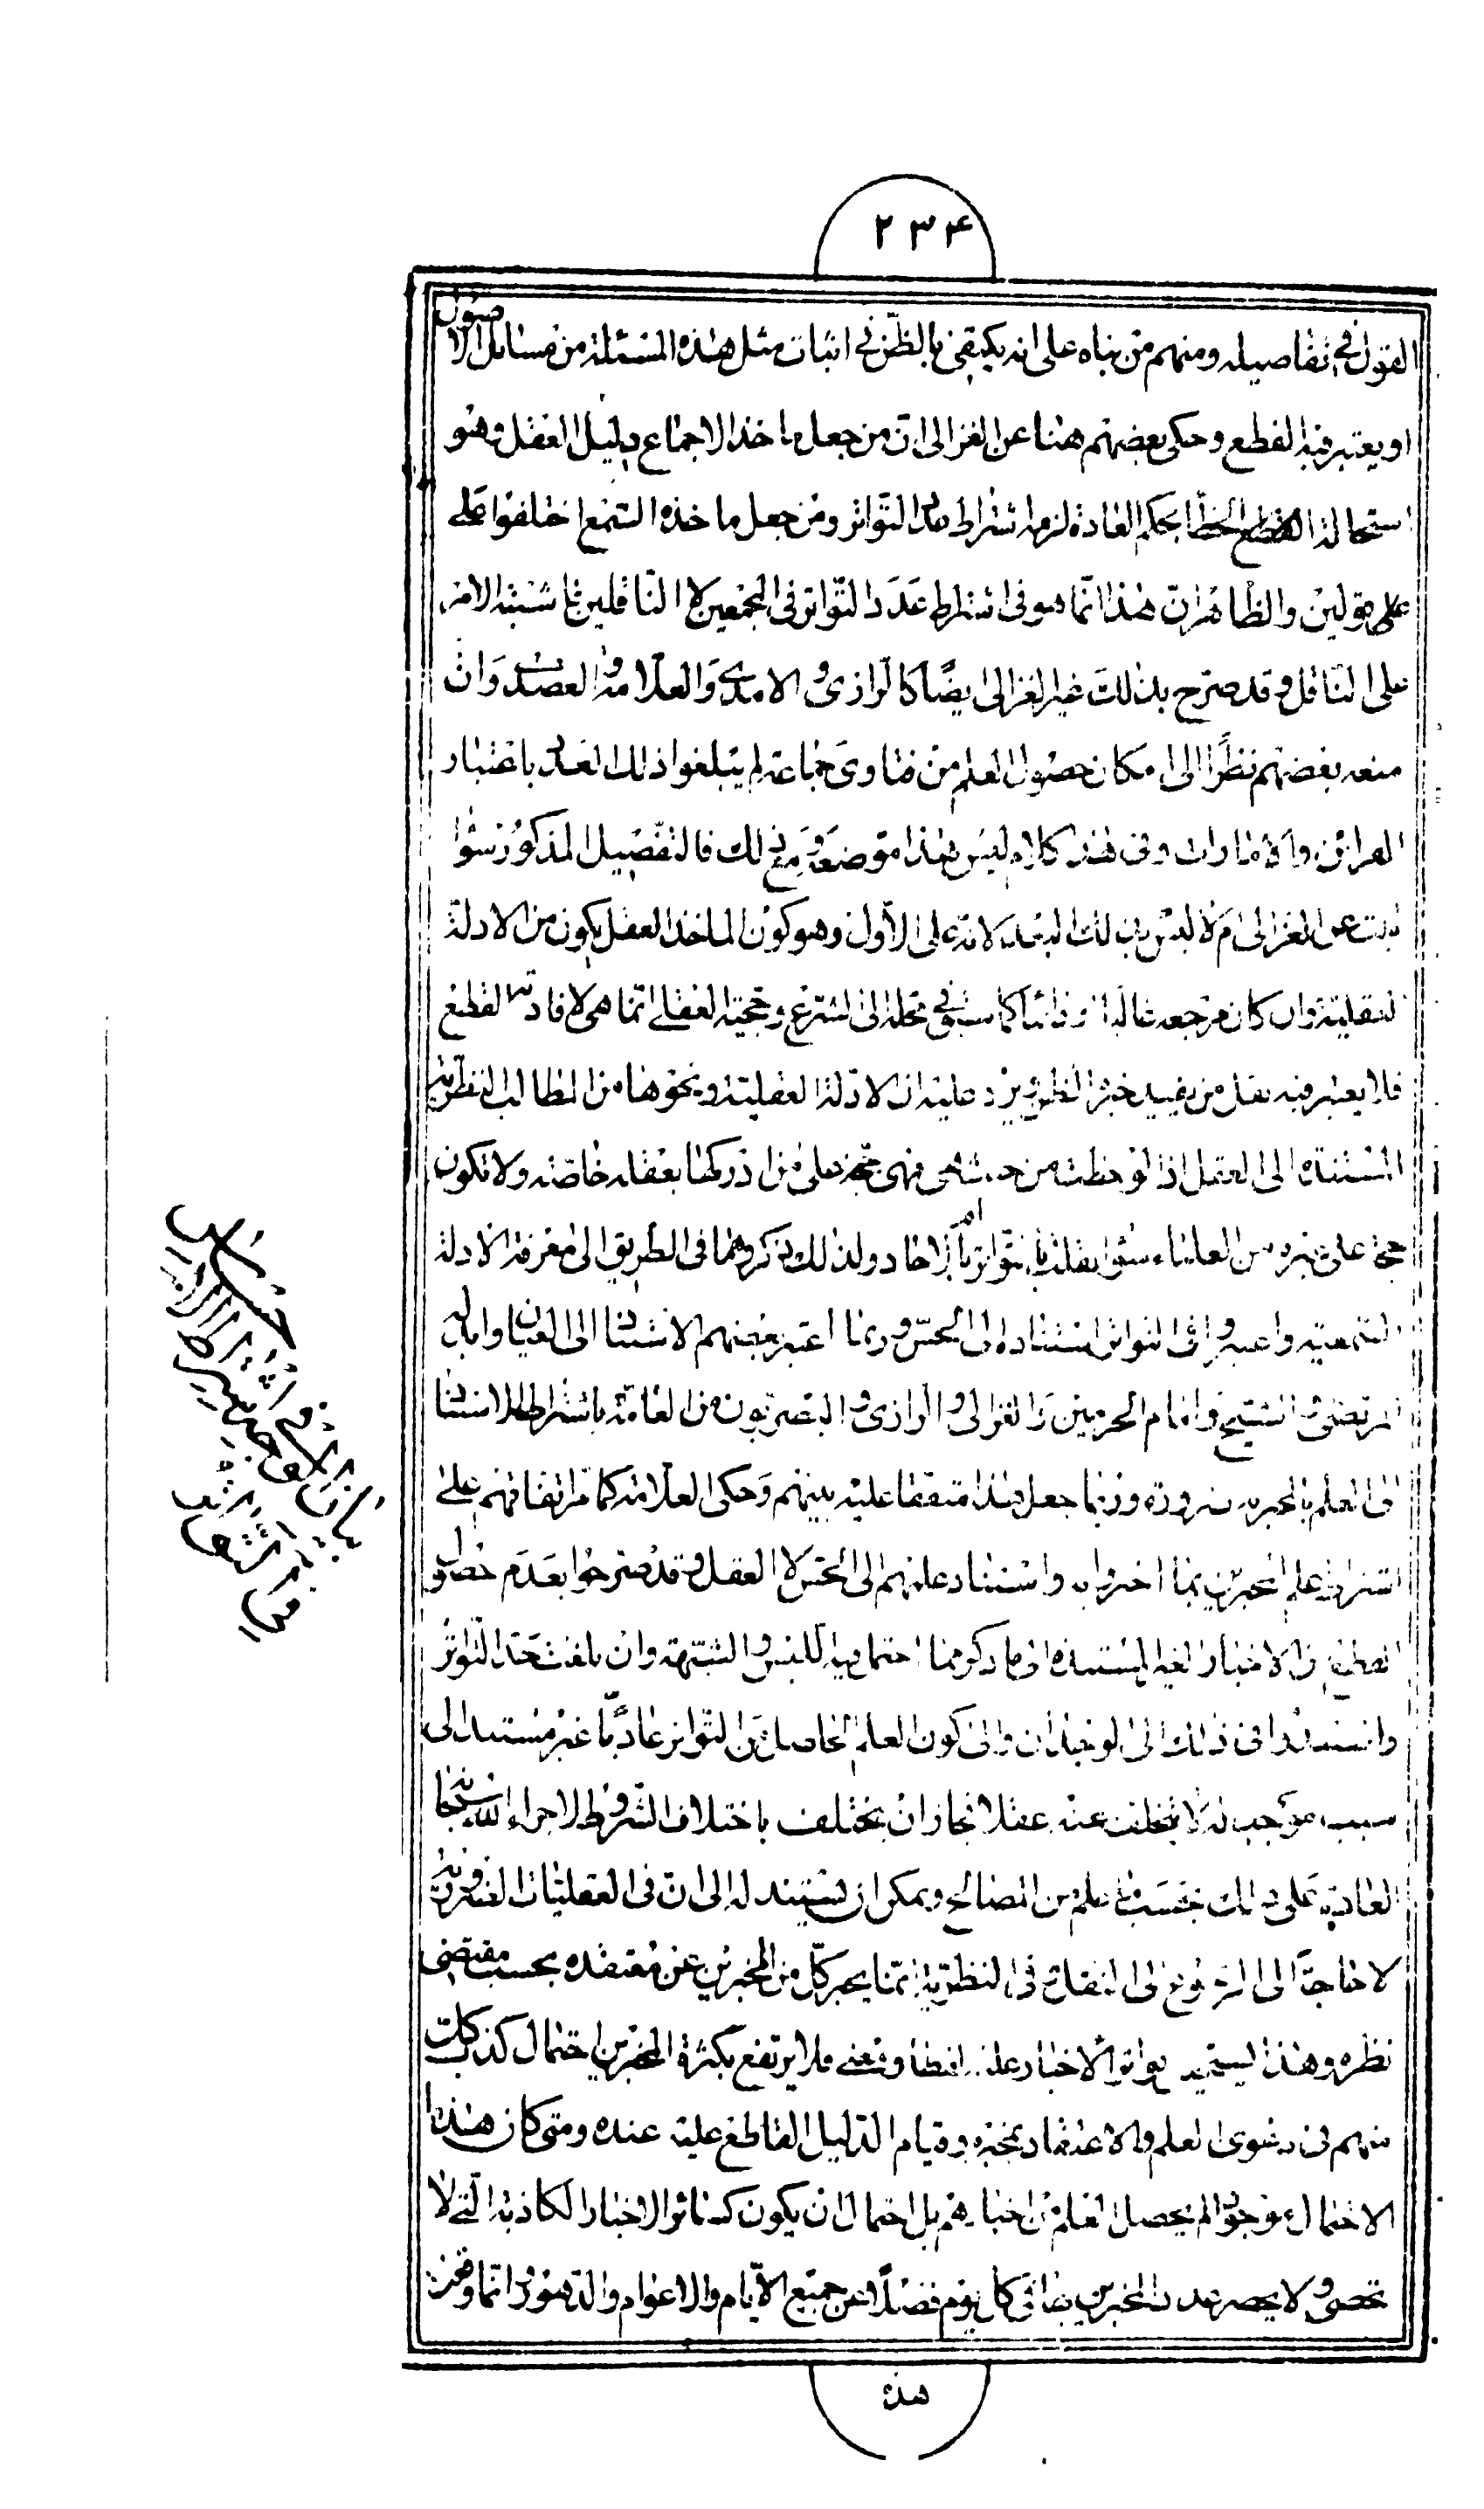 ٢٣۴
القول فى تفاصيله ومنهم من بناه على انه يكتفى بالظن فى اثبات مثل هذه المسئلة من مسائل الاصول
او يعتبر فيه القطع وحكى بعضهم هنا عن الغزالى ان من جعل ماخذ الاجماع دليل العقل وهو
استحالة الخطأ بحكم العادة لزمه اشتراط عدد التواتر ومن جعل ماخذه السمع اختلفوا على
على قولين والظاهر ان هذا انما هو فى اشتراط عدد التواتر فى المجمعين لا الناقلين فاشتبه الامر
على الناقل وقد صرح بذلك غير الغزالى ايضا كالرازى والامدى والعلامة والعضدى وان
منعه بعضهم نظرا الى امكان حصول العلم من فتاوى جماعة لم يبلغوا ذلك العدد باعتبار
القرائن والامارات وفى هذا كلام ليس هذا موضعه ومع ذلك فالتفصيل المذكور سواء
ثبت عن الغزالى ام لا ليس بذلك البعيد لانه على الاول وهو كون الماخذ العقل يكون من الادلة
العقلية وان كان مرجعه غالبا او دائما كما سبق فى محله الى الشرع وحجية العقلى انما هى لافادته القطع
فلا يعتبر فيه نقل من يفيد خبره الظن يرد عليه ان الادلة العقلية ونحوها من المطالب النظرية
المستندة الى العقل اذا لوحظت من حيث هى فهى حجة على من ادركها بعقله خاصة ولا تكون
حجة على غيره من العلماء سواء نقلت بالتواتر ام بالاحاد ولذلك لم يذكروهما فى الطريق الى معرفة الادلة
السمعية واعتبروا فى التواتر استناده الى الحس وربما اعتبر بعضهم الاستناد الى العيان وابدله
المرتضى والشيخ وامام الحرمين والغزالى والرازى والبصريون من العامة باشتراط الاستناد
الى العلم بالمخبر به ضرورة وربما جعل هذا متفقا عليه بينهم وحكى العلامة كما مر اتفاقهم على
اشتراط علم المخبرين بما اخبروا به واستناد علمهم الى الحس لا العقل وقد صرحوا بعدم حصول
القطع من الاخبار الغير المستندة الى ما ذكر مما احتمل فيه اللبس والشبهة وان بلغت حد التواتر
واستندوا فى ذلك الى الوجدان والى كون العلم الحاصل من التواتر عاديا غير مستند الى
سبب موجب له لا يتخلف عنه عقلا فجاز ان يختلف باختلاف الشروط لاجراء الله سبحانه
العادة على ذلك بحسب ما علم من المصالح ويمكن ان يستند له الى ان فى العقليات الضرورية
لا حاجة الى الرجوع الى النقل وفى النظرية انما يخبر كل من المخبرين عن معتقده بحسب مقتضى
نظره وهذا لا يستفيد بتواتر الاخبار علمه لفظا ومعنى فلا يرتفع بكثرة المخبرين احتمال كذب كل
منهم فى دعوى العلم والاعتقاد بمخبره وقيام الدليل القاطع عليه عنده ومتى كان هذا
الاحتمال موجودا لم يحصل العلم من اخبارهم بل احتمال ان يكون كسائر الاخبار الكاذبة التى لا
تحصى ولا يحصر عدد المخبرين بها فى كل يوم فضلا عن جميع الايام والاعوام والدهور وانما وقعت
هذه